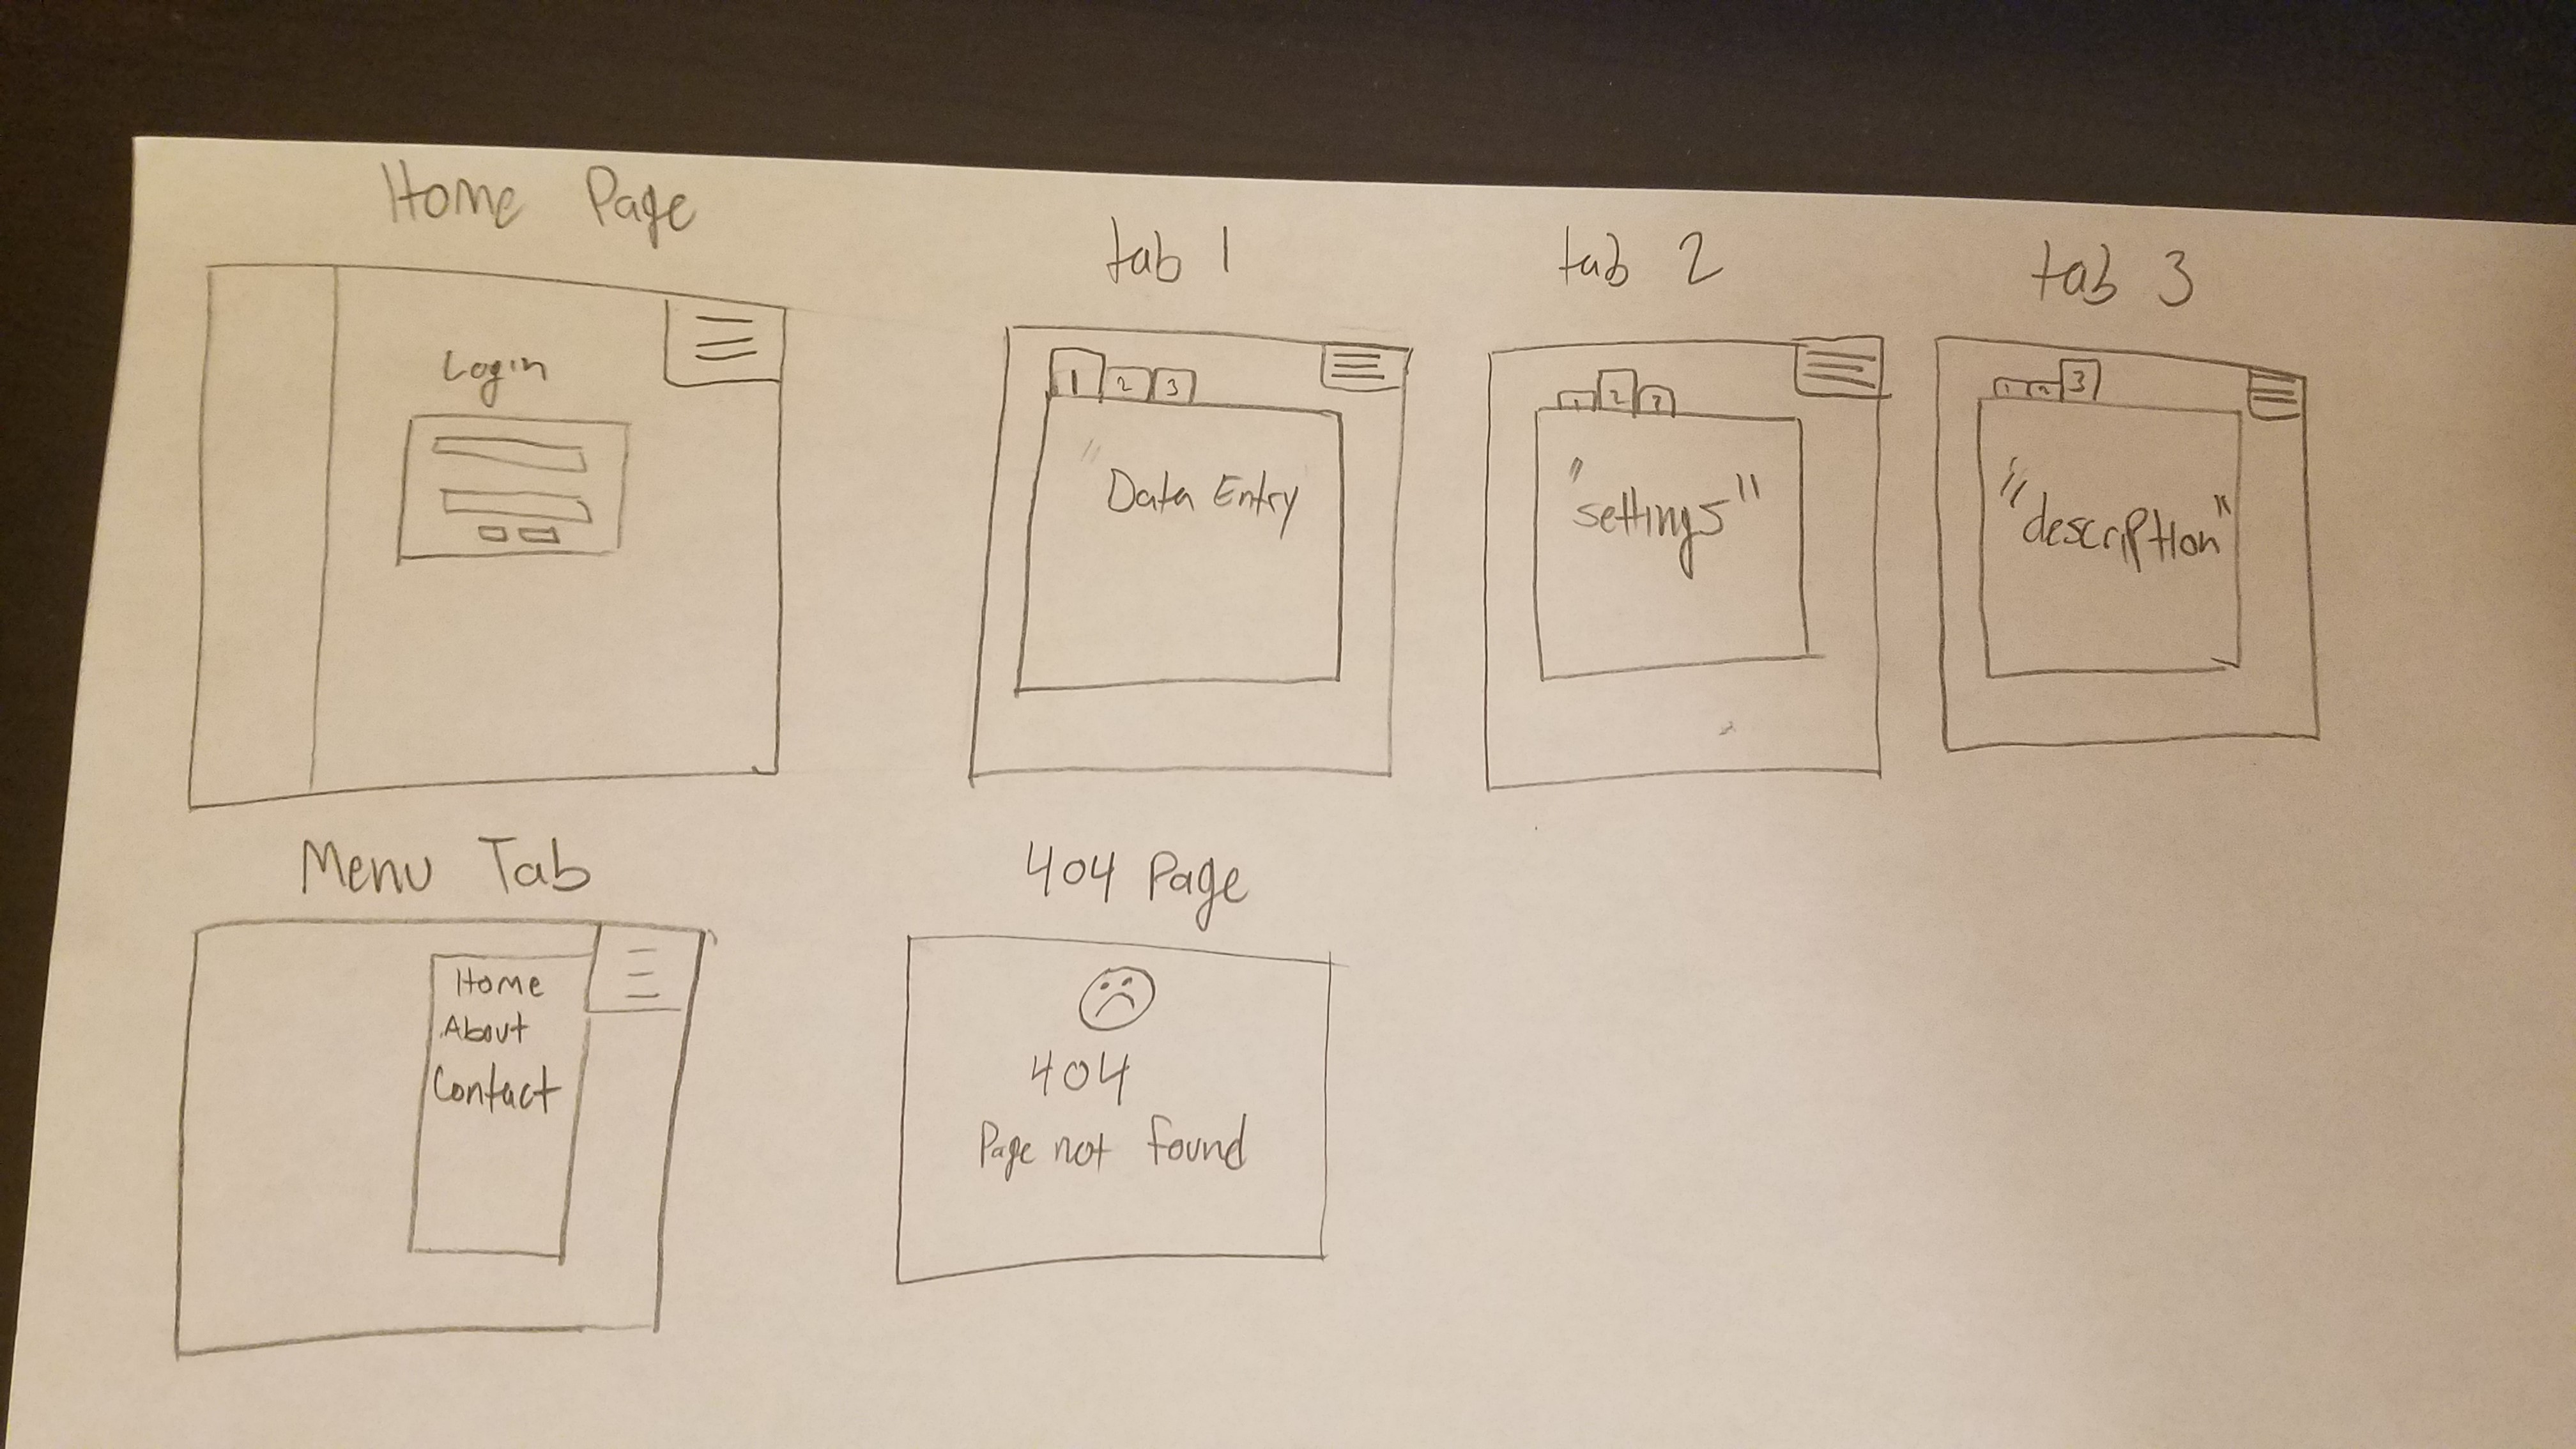 Home Page
Login
tab 1
1 2 3
Data Entry
tab 2
1 2 3
"settings"
tab 3
1 2 3
"description"
Menu Tab
Home
About
Contact
404 Page
404
Page not found